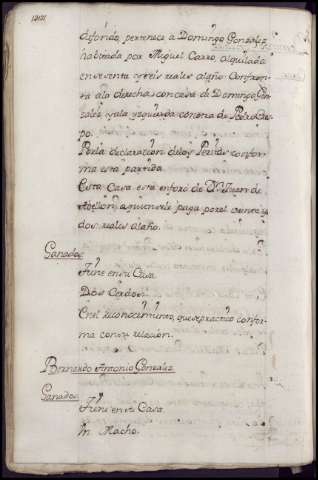 de fondo, pertenece a Domingo Gonzalez
habitada por Miguel Carro, alquilada
en sesenta y seis reales al año. Confron
ta a la derecha con casa de Domingo Gon
zalez, y a la yzquierda con otra de Pedro
po.
Por la declaracion de los Peritos confor
ma esta partida
Esta Casa esta en foro de Dn Juan de
a quien se le paga por el veinte y
dos reales al año.
Ganados
Tiene en su Casa.
Dos Cerdos.
En el reconocimiento, que se practico confor
ma con su relacion.
Bernardo Antonio Gonzalez
Ganados
Tiene en su Casa.
Un Macho.